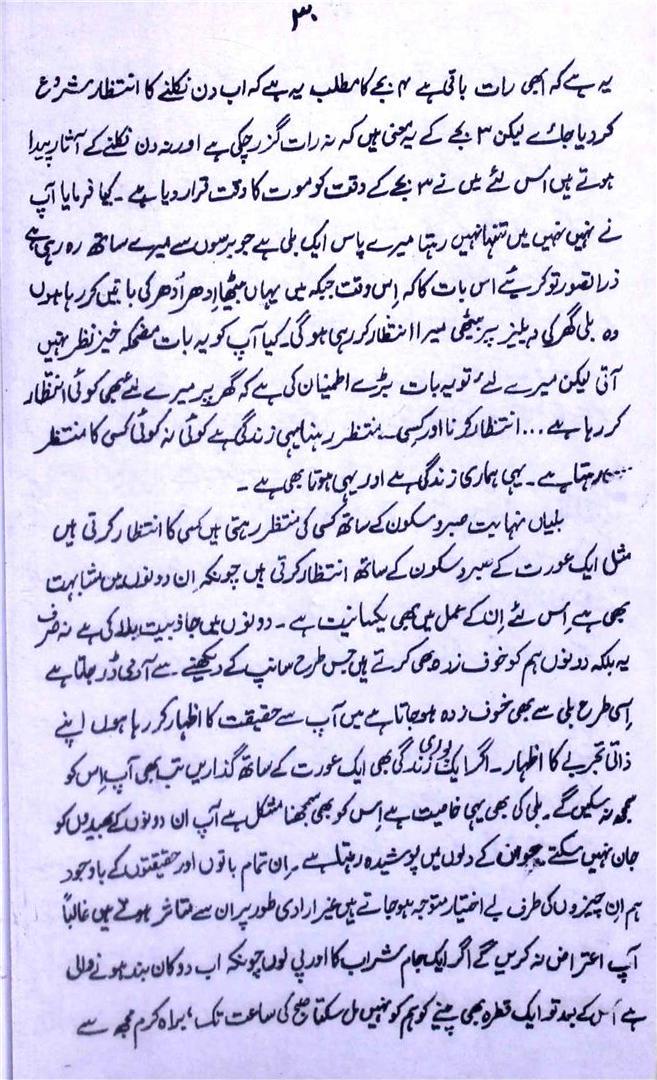 ۳۰
یہ ہے کہ ابھی رات باقی ہے ۴ بجے کا مطلب یہ ہے کہ اب دن نکلنے کا انتظار شروع
کر دیا جائے لیکن ۳ بجے کے یہ معنی ہیں کہ نہ رات گزر چکی ہے اور نہ دن نکلنے کے آثار پیدا
ہوتے ہیں اس لئے میں نے ۳ بجے کے وقت کو موت کا وقت قرار دیا ہے ۔ کیا فرمایا آپ
نے نہیں نہیں میں تنہا نہیں رہتا میرے پاس ایک بلی ہے جو برسوں سے میرے ساتھ رہ رہی ہے
ذرا تصور تو کریئے اس بات کا کہ اِس وقت جبکہ میں یہاں بیٹھا اِدھر اُدھر کی باتیں کر رہا ہوں
وہ بلی گھر کی دہلیز پر بیٹھی میرا انتظار کر رہی ہوگی ۔ کیا آپ کو یہ بات مضحکہ خیز نظر نہیں
آتی لیکن میرے لئے تو یہ بات بڑے اطمینان کی ہے کہ گھر پر میرے لئے بھی کوئی انتظار
کر رہا ہے ... انتظار کرنا اور کسی ۔ منتظر رہنا یہی زندگی ہے کوئی نہ کوئی کسی کا منتظر
رہتا ہے ۔ یہی ہماری زندگی ہے اور یہی ہوتا بھی ہے ۔
بلیاں نہایت صبر و سکون کے ساتھ کسی کی منتظر رہتی ہیں کسی کا انتظار کرتی ہیں
مثل ایک عورت کے صبر و سکون کے ساتھ انتظار کرتی ہیں چونکہ اِن دونوں میں مشابہت
بھی ہے اِس لئے اِن کے عمل میں بھی یکسانیت ہے ۔ دونوں میں جاذبیت بلا کی ہے نہ صرف
یہ بلکہ دونوں ہم کو خوف زدہ بھی کرتے ہیں جس طرح سانپ کے دیکھنے ۔ سے آدمی ڈر جاتا ہے
اِسی طرح بلی سے بھی خوف زدہ ہو جاتا ہے میں آپ سے حقیقت کا اظہار کر رہا ہوں اپنے
ذاتی تجربے کا اظہار ۔ اگر ایک پوری زندگی بھی ایک عورت کے ساتھ گذاریں تب بھی آپ اِس کو
سمجھ نہ سکیں گے ۔ بلی کی بھی یہی خاصیت ہے اِس کو بھی سمجھنا مشکل ہے آپ ان دونوں کے بھیدوں کو
جان نہیں سکتے کے دلوں میں پوشیدہ رہتا ہے ۔ ان تمام باتوں اور حقیقتوں کے باوجود
ہم اِن چیزوں کی طرف بے اختیار متوجہ ہو جاتے ہیں غیر ارادی طور پر ان سے متاثر ہوتے ہیں غالباً
آپ اعتراض نہ کریں گے اگر ایک جام شراب کا اور پی لوں چونکہ اب دوکان بند ہونے والی
ہے اُس کے بعد تو ایک قطرہ بھی پینے کو ہم کو نہیں مل سکتا صبح کی ساعت تک ، براہ کرم مجھ سے